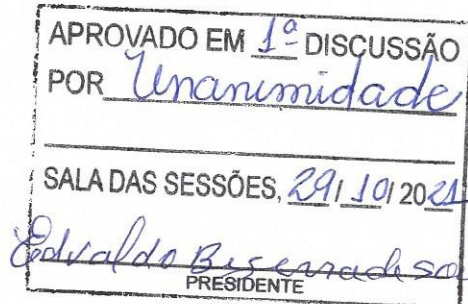 APROVADO EM 1ª DISCUSSÃO
POR Unanimidade
SALA DAS SESSÕES, 29/10/2021
Edvaldo Beserra de So
PRESIDENTE